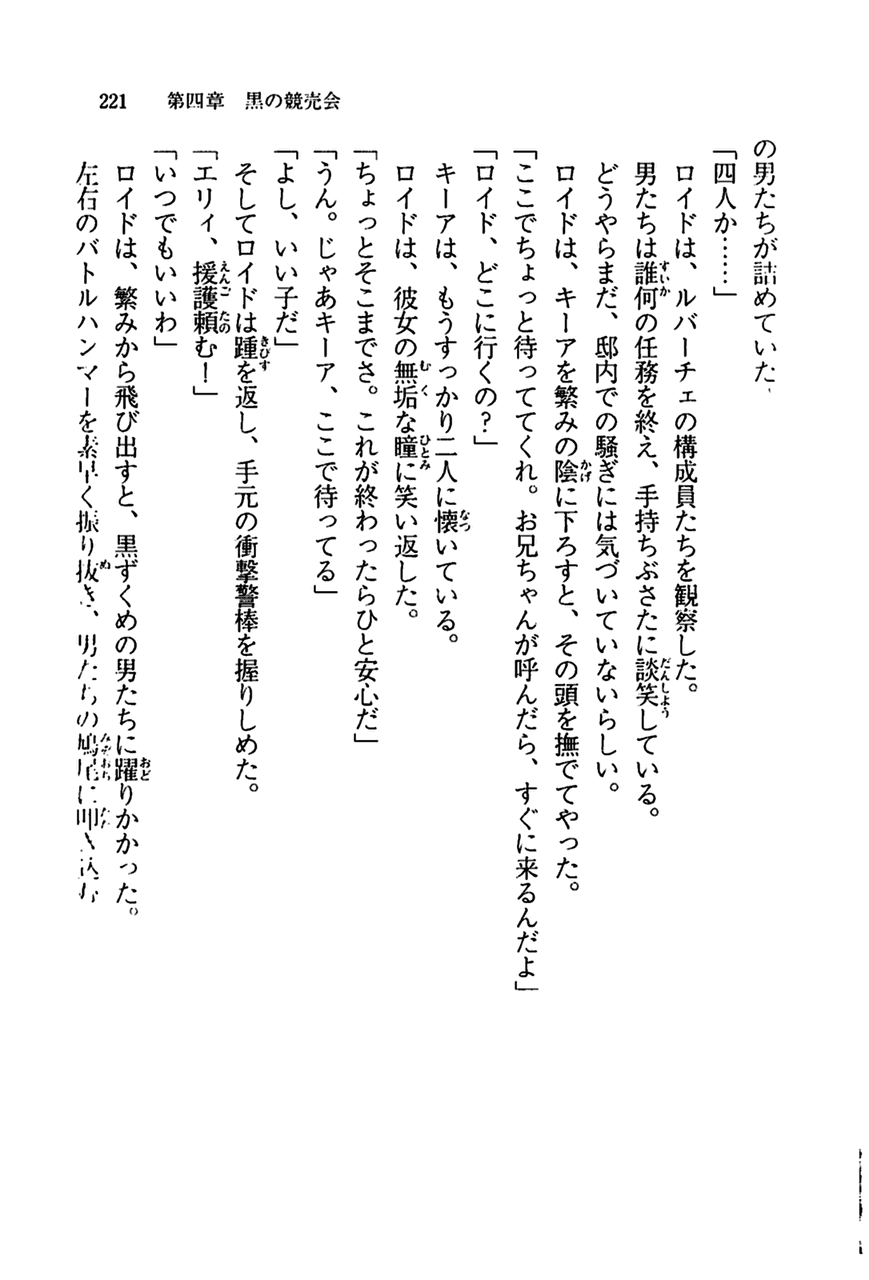 221 第四章 黒の競売会
の男たちが詰めていた。
「四人か……」
ロイドは、ルバーチェの構成員たちを観察した。
男たちは誰何の任務を終え、手持ちぶさたに談笑している。
どうやらまだ、邸内での騒ぎには気づいていないらしい。
ロイドは、キーアを繁みの陰に下ろすと、その頭を撫でてやった。
「ここでちょっと待っててくれ。お兄ちゃんが呼んだら、すぐに来るんだよ」
「ロイド、どこに行くの?」
キーアは、もうすっかり二人に懐いている。
ロイドは、彼女の無垢な瞳に笑い返した。
「ちょっとそこまでさ。これが終わったらひと安心だ」
「うん。じゃあキーア、ここで待ってる」
「よし、いい子だ」
そしてロイドは踵を返し、手元の衝撃警棒を握りしめた。
「エリィ、援護頼む!」
「いつでもいいわ」
ロイドは、繁みから飛び出すと、黒ずくめの男たちに躍りかかった。
左右のバトルハンマーを素早く振り抜き、男たちの鳩尾に叩き込む